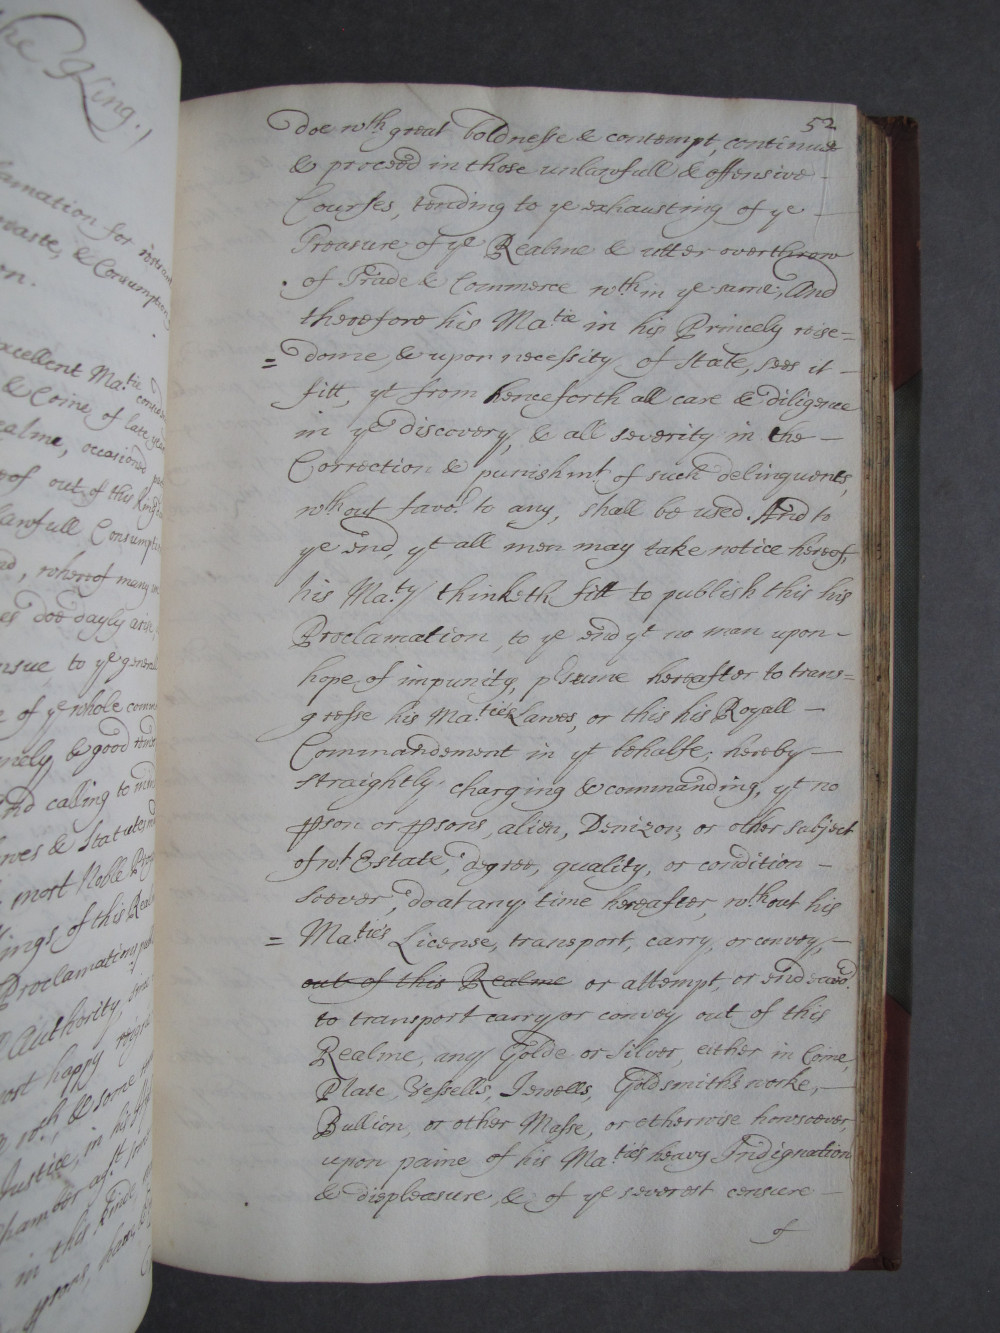 the King.
lamation for restrain
waste, & Consumption
on.
Excellent Ma.tie
& Coine, of late
ealme, occasioned
of out of this
lawfull Consumption
whereof many
doe dayly
ensue to ye generall
of ye whole
& good
and calling to
& Statutes
most Noble
ings of this Realme
Proclamations
Authority,
most happy
wth, & some
Justice, in his
hamber agst
in this kinde
52
doe wth great boldnesse & contempt, continue
& proceed in those unlawfull & offensive -
Courses, tending to ye exhausting of ye -
Treasure of ye Realme & utter overthrow
of Trade & Commerce wthin ye same; And
therefore his Ma.tie in his Princely wise=
= dome, & upon necessity of State, sees it -
fitt, yt from henceforth all care & diligence
in ye discovery, & all severity in the -
Correction & punishmt. of such delinquents,
wthout favor. to any, shall be used. And to
ye end, yt all men may take notice hereof,
his Ma.ty thinketh fitt to publish this his
Proclamation, to ye end yt no man upon -
hope of impunity, psume hereafter to trans=
gresse his Ma.ties Lawes, or this his Royall -
Commandement in yt behalfe; hereby -
straightly charging & commanding, yt no
pson or psons, alien, Denizon, or other subject
of wt Estate, degree, quality, or condition -
soever, do at any time hereafter, wthout his
= Ma.ties License, transport, carry, or convey, -
out of this Realme or attempt, or endeavor.
to transport carry or convey out of this
Realme, any Golde or Silver, either in Coine,
Plate, Vessells, Jewells, Goldsmiths worke, -
Bullion, or other Masse, or otherwise howsoever
upon paine of his Ma.ties heavy Indignation
& displeasure, & of ye severest censure -
of